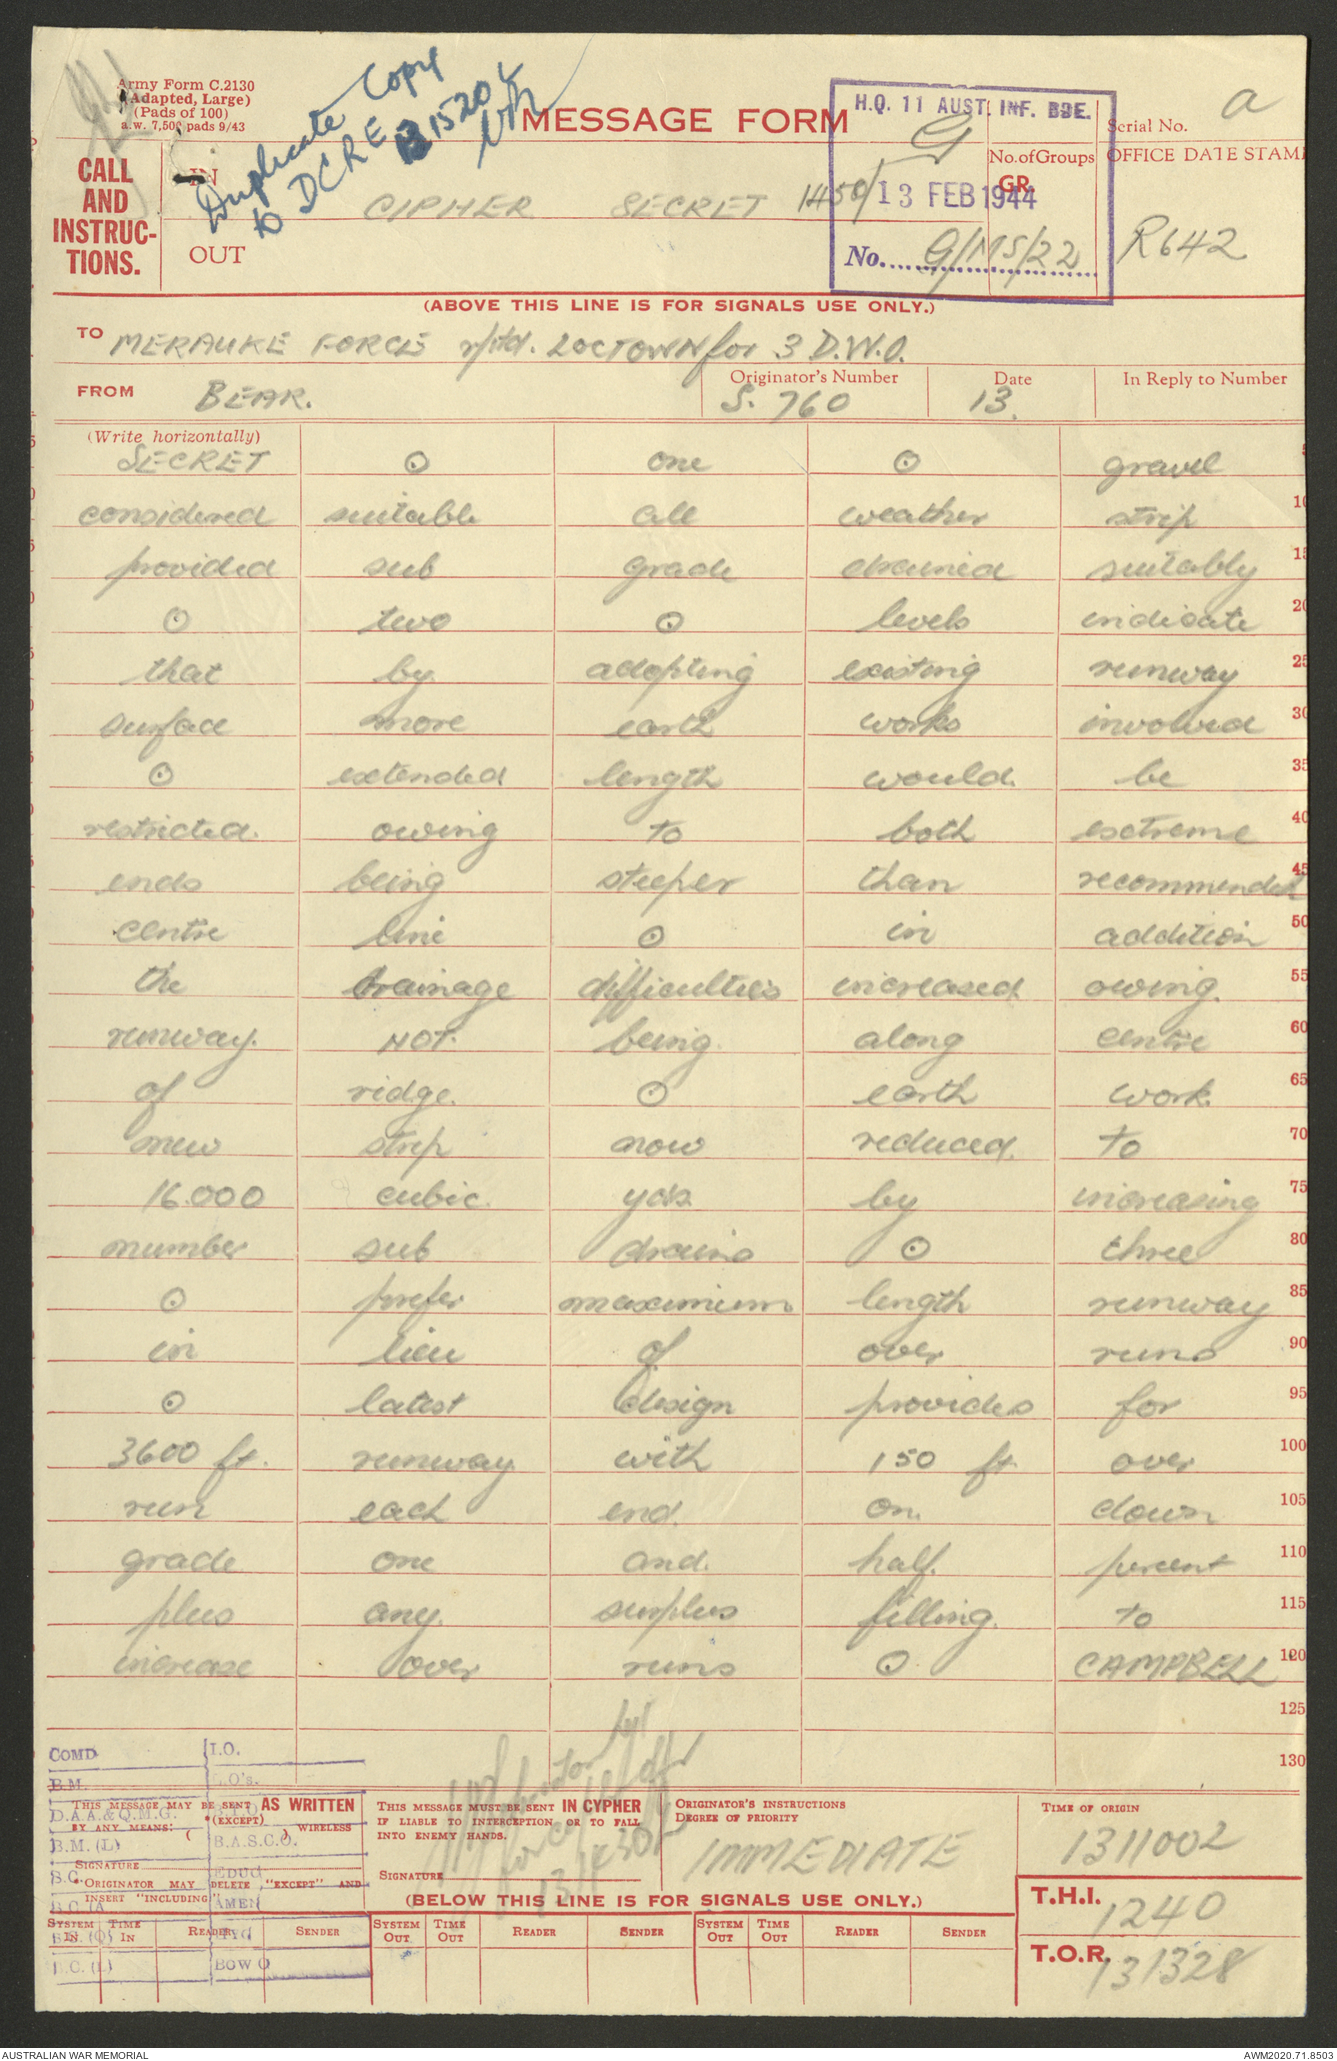 Army Form C.2130
(Adapted, Large)
(Pads of 100)
a.w. 7,500 pads 9/43
Duplicate Copy
to DCRE B 15204
MESSAGE FORM
H.Q. 11 AUST. INF. BDE.
G
13 FEB 1944
No. G/MS/22
Serial No. a
CALL
AND
INSTRUC-
TIONS.
IN
OUT
CIPHER SECRET 1450/
No. of Groups
GR.
OFFICE DATE STAMP
R642
(ABOVE THIS LINE IS FOR SIGNALS USE ONLY.)
TO MERAUKE FORCE rptd. LOCTOWN for 3 D.W.O.
FROM BEAR.
Originator's Number S. 760
Date 13.
In Reply to Number
(Write horizontally)
SECRET ⊙ one ⊙ gravel 5
considered suitable all weather strip 10
provided sub grade drained suitably 15
⊙ two ⊙ levels indicate 20
that by adopting existing runway 25
surface more earth works involved 30
⊙ extended length would be 35
restricted. owing to both extreme 40
ends being steeper than recommended 45
centre line ⊙ in addition 50
the drainage difficulties increased owing. 55
runway. NOT. being. along centre 60
of ridge. ⊙ earth work. 65
new strip now reduced. to 70
16.000 cubic. yds. by increasing 75
number sub drains ⊙ three 80
⊙ prefer maximum length runway 85
in lieu of over runs 90
⊙ latest design provides for 95
3600 ft. runway with 150 ft. over 100
run each end. on. down 105
grade one and. half. percent 110
plus any. surplus filling. to 115
increase over runs ⊙ CAMPBELL 120
125
130
COMD
B.M.
D.A.A.&Q.M.G.
B.M. (L)
I.O.
L.O's.
B.A.S.C.O.
EDUC
AMEN
BOW O
THIS MESSAGE MAY BE SENT AS WRITTEN
BY ANY MEANS: (EXCEPT) WIRELESS
SIGNATURE
*ORIGINATOR MAY DELETE "EXCEPT" AND
INSERT "INCLUDING"
THIS MESSAGE MUST BE SENT IN CYPHER
IF LIABLE TO INTERCEPTION OR TO FALL
INTO ENEMY HANDS.
SIGNATURE
ORIGINATOR'S INSTRUCTIONS
DEGREE OF PRIORITY
IMMEDIATE
TIME OF ORIGIN
131100Z
(BELOW THIS LINE IS FOR SIGNALS USE ONLY.)
T.H.I. 1240
T.O.R. 131328
SYSTEM IN
TIME IN
READER
SENDER
SYSTEM OUT
TIME OUT
READER
SENDER
SYSTEM OUT
TIME OUT
READER
SENDER
AUSTRALIAN WAR MEMORIAL
AWM2020.71.8503